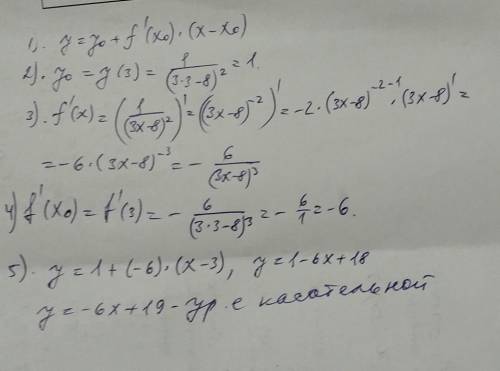 1). y = y₀ + f'(x₀)·(x-x₀)
2). y₀ = y(3) = 1/(3·3-8)² = 1.
3). f'(x) = (1/(3x-8)²)' = ((3x-8)⁻²)' = -2·(3x-8)⁻²⁻¹·(3x-8)' =
= -6·(3x-8)⁻³ = - 6/(3x-8)³
4) f'(x₀) = f'(3) = - 6/(3·3-8)³ = - 6/1 = -6.
5). y = 1+(-6)·(x-3), y = 1-6x+18
y = -6x+19 - ур. е касательной